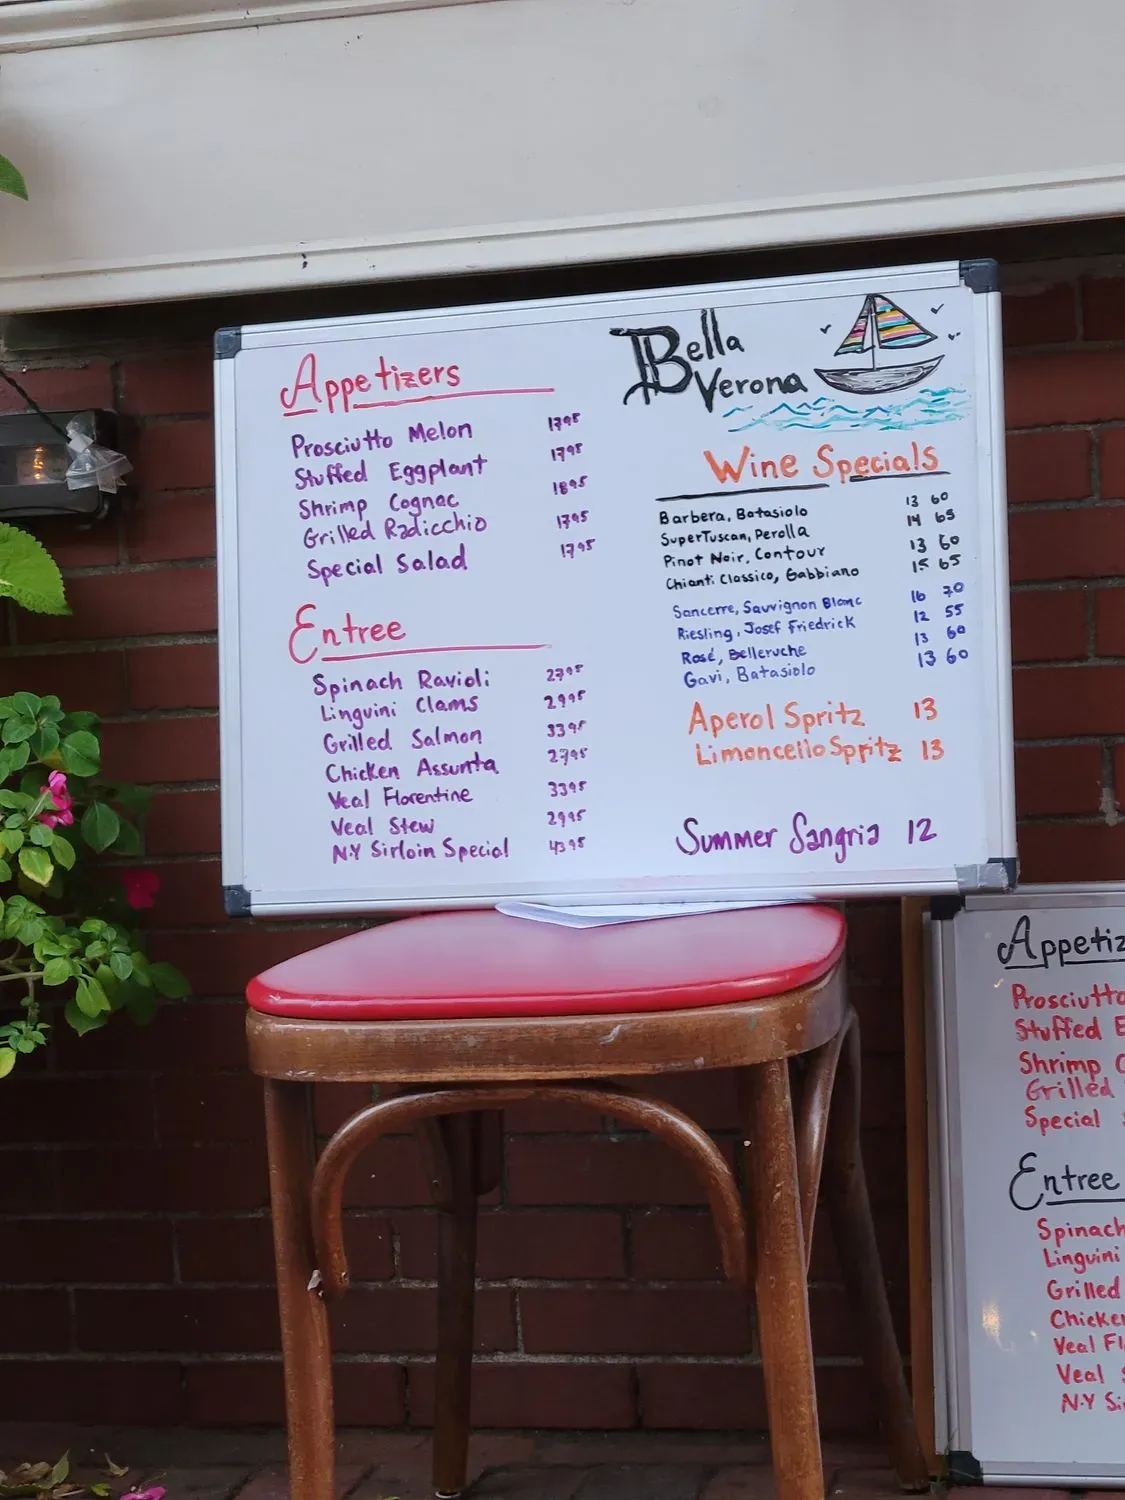 Appetizers
Prosciutto Melon 17⁹⁵
Stuffed Eggplant 17⁹⁵
Shrimp Cognac 18⁹⁵
Grilled Radicchio 17⁹⁵
Special Salad 17⁹⁵
Entree
Spinach Ravioli 27⁹⁵
Linguini Clams 29⁹⁵
Grilled Salmon 33⁹⁵
Chicken Assunta 27⁹⁵
Veal Florentine 33⁹⁵
Veal Stew 29⁹⁵
N.Y Sirloin Special 43⁹⁵
Bella
Verona
Wine Specials
Barbera, Batasiolo 13 60
SuperTuscan, Perolla 14 65
Pinot Noir, Contour 13 60
Chianti Classico, Gabbiano 15 65
Sancerre, Sauvignon Blanc 16 70
Riesling, Josef Friedrick 12 55
Rosé, Belleruche 13 60
Gavi, Batasiolo 13 60
Aperol Spritz 13
Limoncello Spritz 13
Summer Sangria 12
Appetiz
Prosciutto
Stuffed E
Shrimp C
Grilled
Special
Entree
Spinach
Linguini
Grilled
Chicken
Veal Fl
Veal
N.Y Si